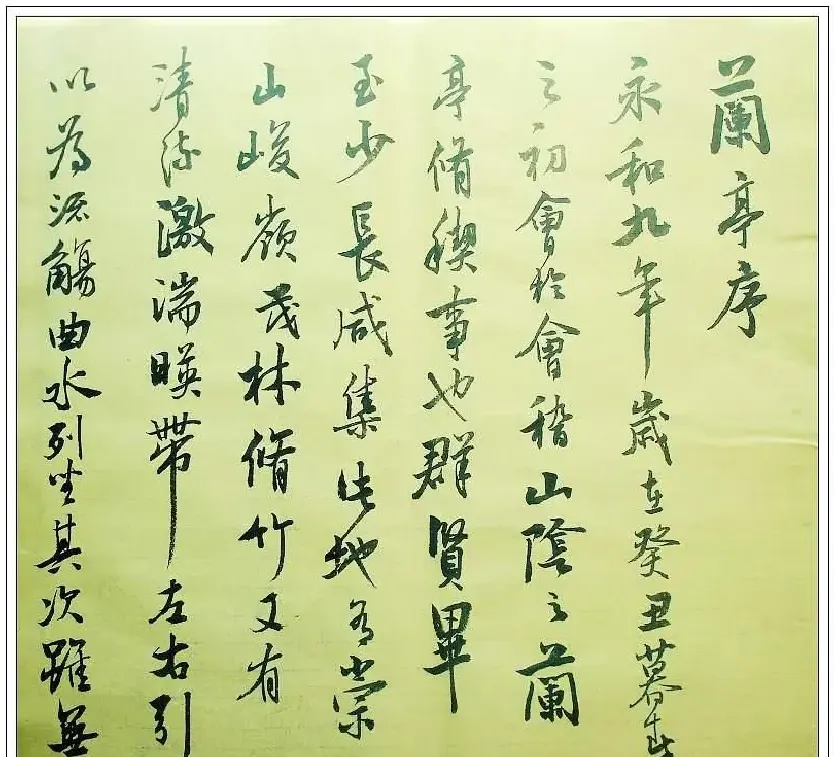 蘭亭序
永和九年歲在癸丑暮春
之初會於會稽山陰之蘭
亭脩禊事也群賢畢
至少長咸集此地有崇
山峻嶺茂林脩竹又有
清流激湍暎帶左右引
以為流觴曲水列坐其次雖無